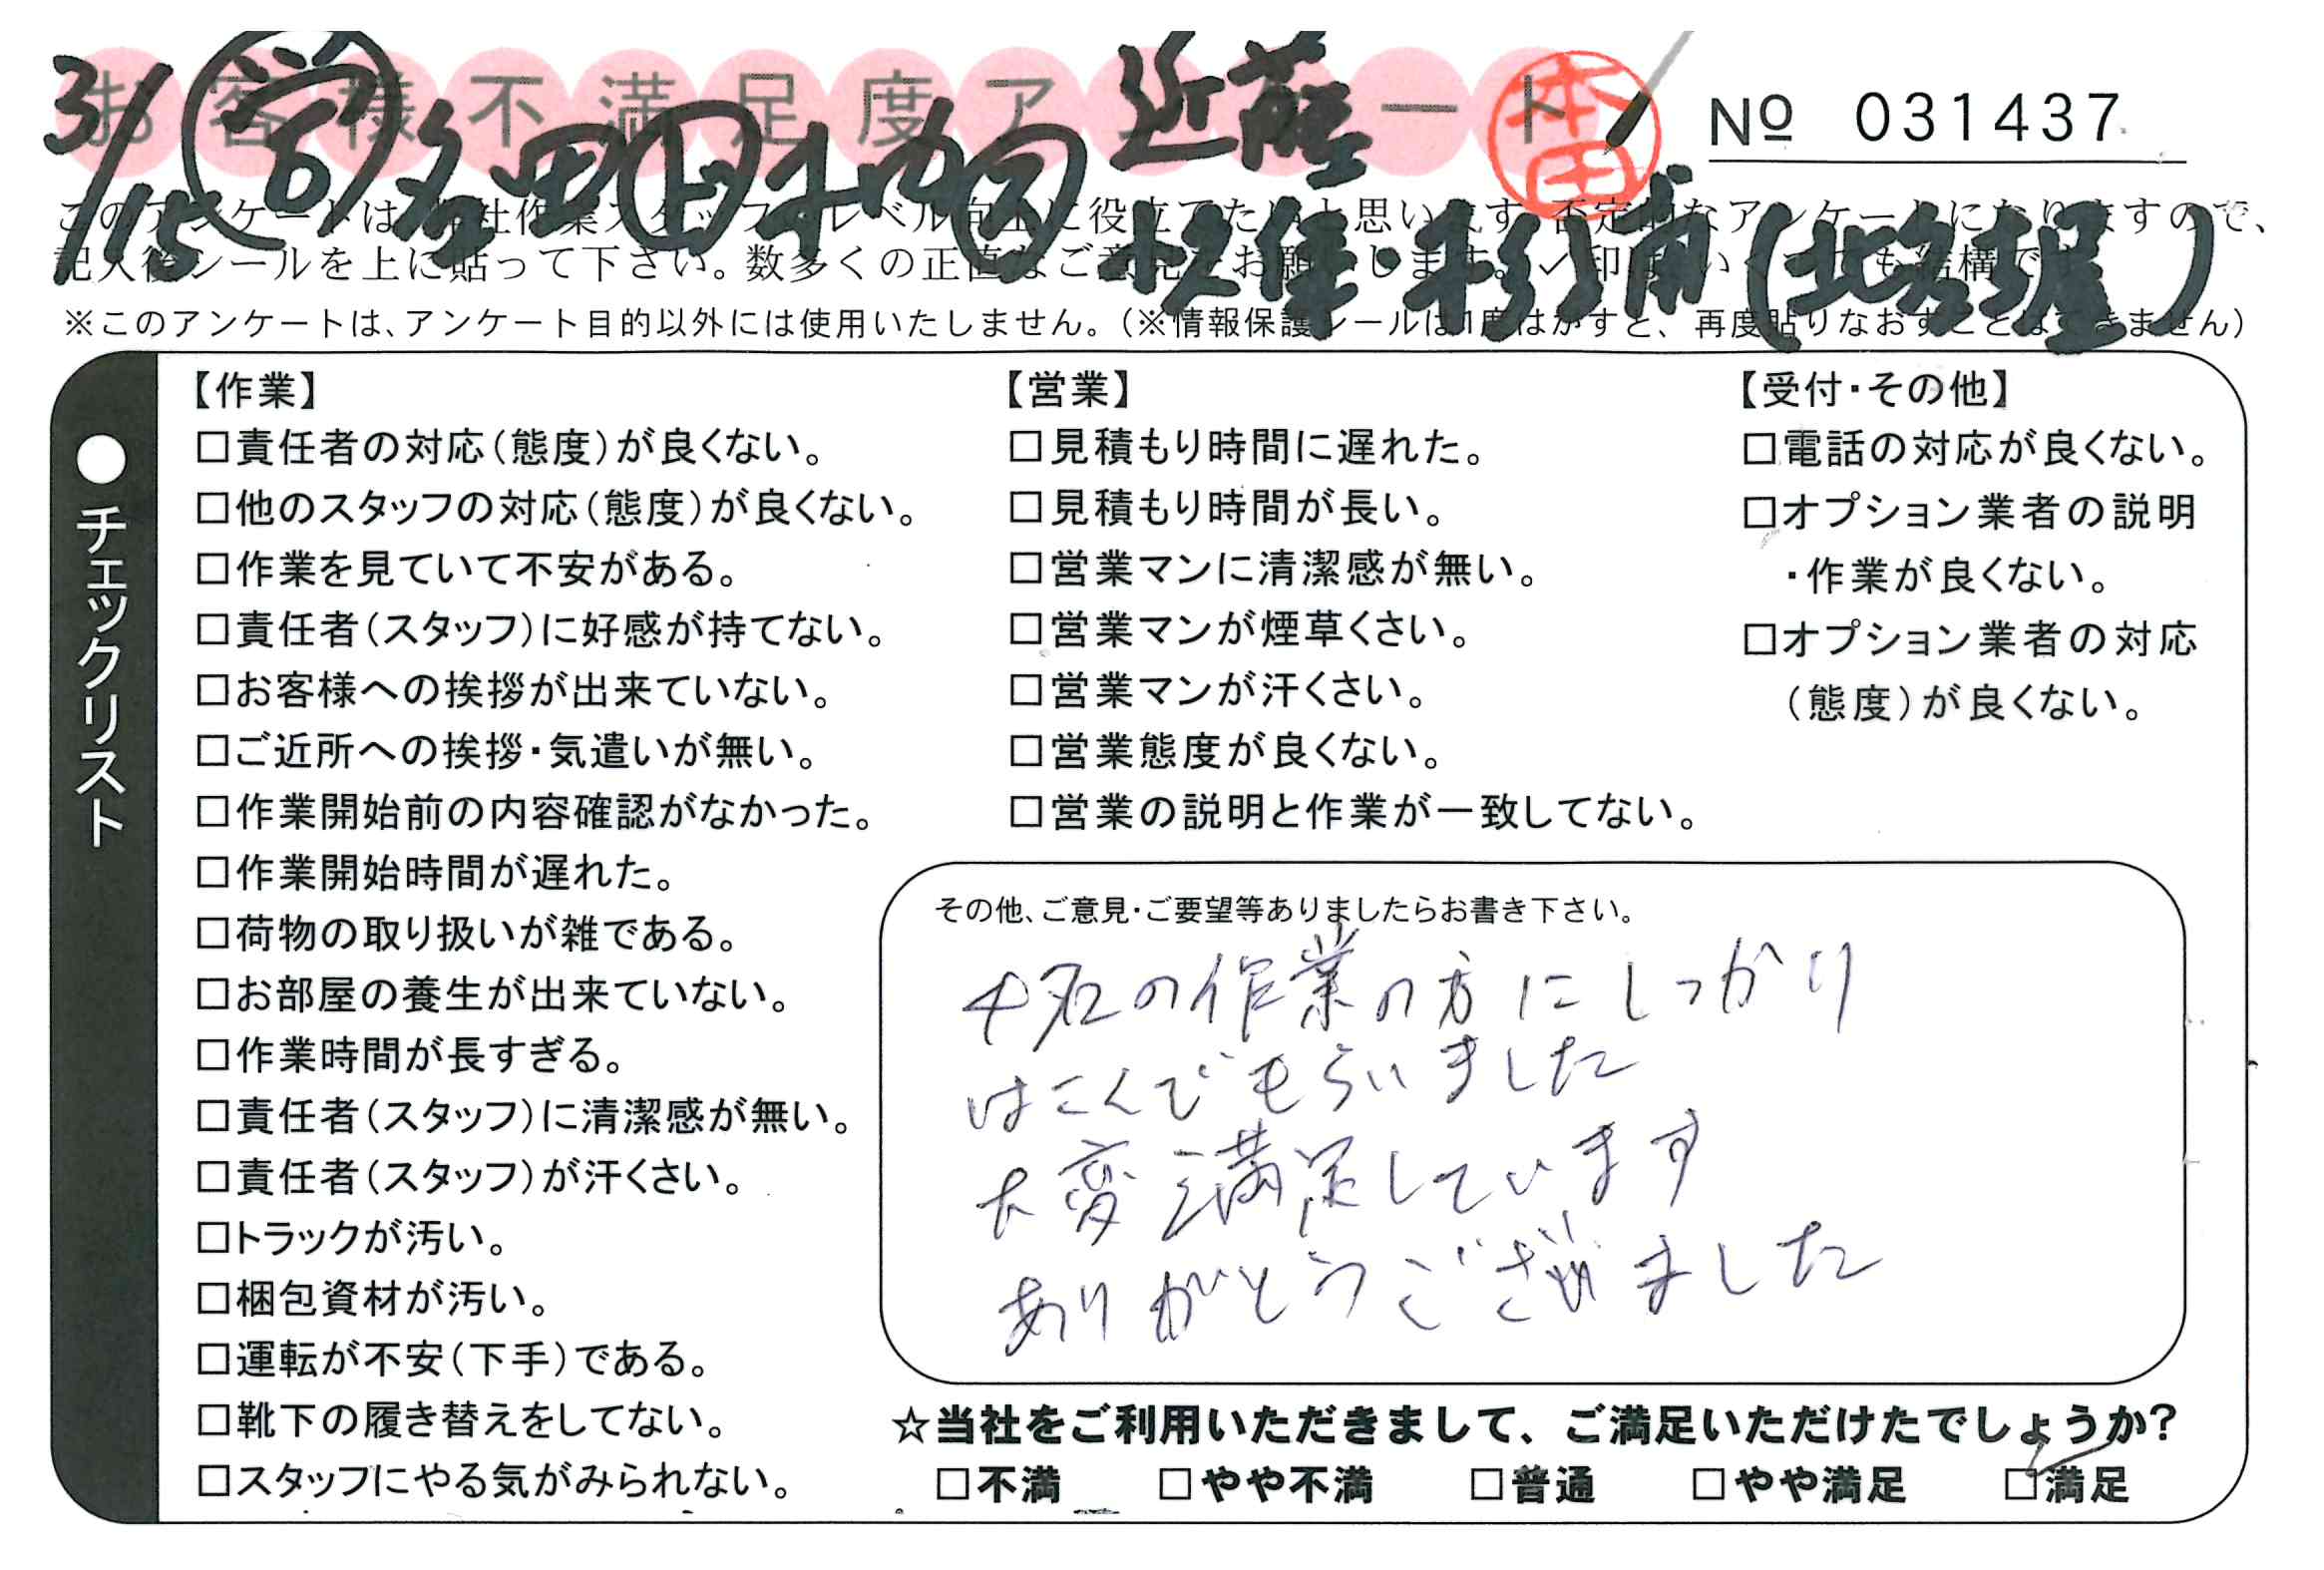 お客様不満足度アンケート
3/15
近藤
本田
№ 031437
・杉浦(北名古屋)
※このアンケートは、アンケート目的以外には使用いたしません。(※情報保護シールは1度はがすと、再度貼りなおすことはできません)
●チェックリスト
【作業】
□責任者の対応(態度)が良くない。
□他のスタッフの対応(態度)が良くない。
□作業を見ていて不安がある。
□責任者(スタッフ)に好感が持てない。
□お客様への挨拶が出来ていない。
□ご近所への挨拶・気遣いが無い。
□作業開始前の内容確認がなかった。
□作業開始時間が遅れた。
□荷物の取り扱いが雑である。
□お部屋の養生が出来ていない。
□作業時間が長すぎる。
□責任者(スタッフ)に清潔感が無い。
□責任者(スタッフ)が汗くさい。
□トラックが汚い。
□梱包資材が汚い。
□運転が不安(下手)である。
□靴下の履き替えをしてない。
□スタッフにやる気がみられない。
【営業】
□見積もり時間に遅れた。
□見積もり時間が長い。
□営業マンに清潔感が無い。
□営業マンが煙草くさい。
□営業マンが汗くさい。
□営業態度が良くない。
□営業の説明と作業が一致してない。
【受付・その他】
□電話の対応が良くない。
□オプション業者の説明
・作業が良くない。
□オプション業者の対応
(態度)が良くない。
その他、ご意見・ご要望等ありましたらお書き下さい。
4名の作業の方にしっかり
はこんでもらいました
大変満足しています
ありがとうございました
☆当社をご利用いただきまして、ご満足いただけたでしょうか?
□不満 □やや不満 □普通 □やや満足 ☑満足